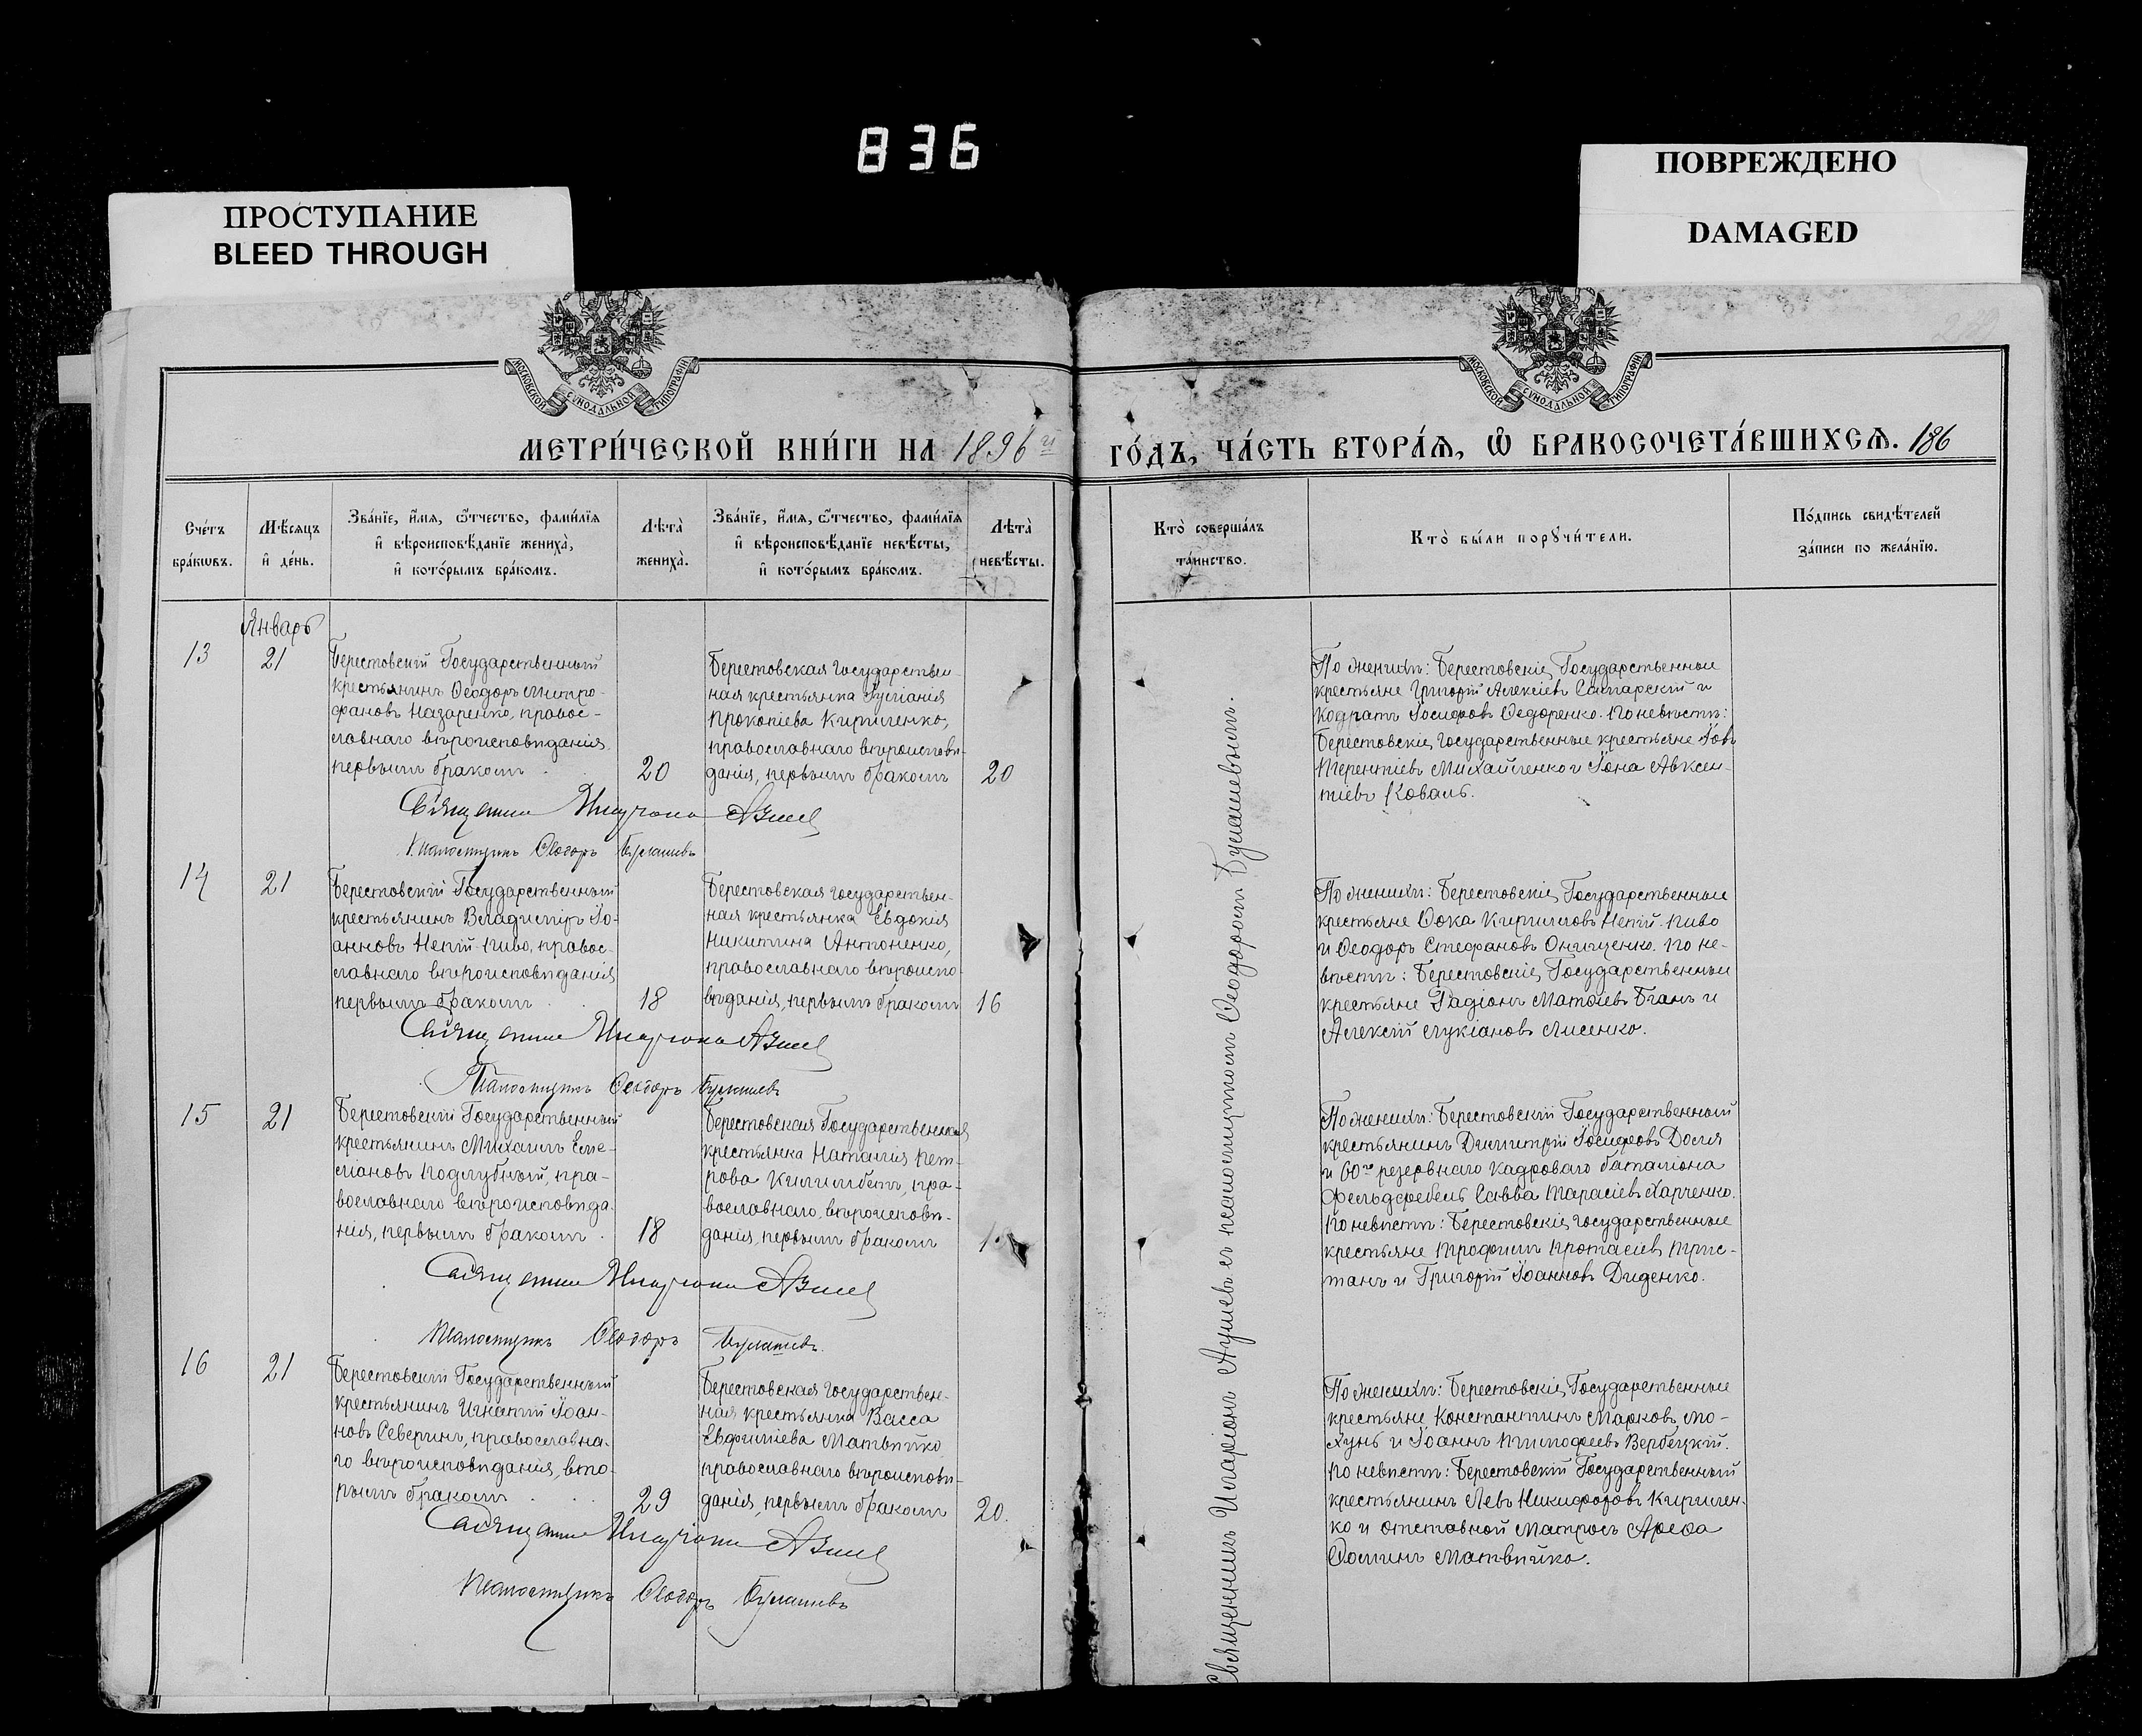 836
ПРОСТУПАНИЕ
BLEED THROUGH
ПОВРЕЖДЕНО
DAMAGED
МОСКОВСКОЙ СѴНОДАЛЬНОЙ ТИПОГРАФІИ
МОСКОВСКОЙ СѴНОДАЛЬНОЙ ТИПОГРАФІИ
МЕТРИ́ЧЕСКОЙ КНИ́ГИ НА 1896 й
ГО́ДЪ, ЧА́СТЬ ВТОРА́Ѧ, Ѡ҆ БРАКОСОЧЕТА́ВШИХСѦ. 186
Сче́тъ
бра́кѡвъ.
Мѣ́сяцъ
и҆ де́нь.
Зва́нїе, и҆́мя, ѻ҆́тчество, фами́лїя
и҆ вѣроисповѣ́данїе жениха̀,
и҆ кото́рымъ бра́комъ.
Лѣта̀
жениха̀.
Зва́нїе, и҆́мя, ѻ҆́тчество, фами́лїя
и҆ вѣроисповѣ́данїе невѣ́сты,
и҆ кото́рымъ бра́комъ.
Лѣта̀
невѣ́сты.
Кто̀ соверша́лъ
та́инство.
Кто̀ бы́ли порꙋчи́тели.
По́дпись свидѣ́телей
за́писи по жела́нїю.
Январь
13
21
Берестовскій Государственный
крестьянинъ Ѳеодоръ Митро-
фановъ Назаренко, правос-
лавнаго вѣроисповѣданія
первымъ бракомъ
20
Берестовская государствен-
ная крестьянка
Прокопіева Кириленко,
православнаго вѣроисповѣ-
данія, первымъ бракомъ
20
Псаломщикъ Ѳеодоръ Булашевъ
По женихѣ: Берестовскіе Государственные
крестьяне Григорій Алексіевъ Самарскій и
Кодратъ Іосифовъ Ѳедоренко. По невѣстѣ:
Берестовскіе государственные крестьяне Іовъ
Терентіевъ Михайленко и Іона Авксен-
тіевъ Коваль.
14
21
Берестовскій Государственный
крестьянинъ Владиміръ Іо-
анновъ Непій-пиво, правос-
лавнаго вѣроисповѣданія
первымъ бракомъ
18
Берестовская государствен-
ная крестьянка Евдокія
Никитина Антоненко,
православнаго вѣроиспо-
вѣданія, первымъ бракомъ
16
Псаломщикъ Ѳеодоръ Булашевъ
По женихѣ: Берестовскіе Государственные
крестьяне Ѳока Кирилловъ Непій-пиво
и Ѳеодоръ Стефановъ Онищенко. По не-
вѣстѣ: Берестовскіе Государственные
крестьяне Радіонъ Матѳіевъ Бганъ и
Алексій Лукіановъ Лисенко.
15
21
Берестовскій Государственный
крестьянинъ Михаилъ Еме-
ліановъ Подлубный, пра-
вославнаго вѣроисповѣда-
нія, первымъ бракомъ
18
Берестовская Государственная
крестьянка Наталія Пет-
рова Килимбетъ, пра-
вославнаго вѣроисповѣ-
данія, первымъ бракомъ
Псаломщикъ Ѳеодоръ Булашевъ.
По женихѣ: Берестовскій Государственный
крестьянинъ Димитрій Іосифовъ Доля
и 60го резервнаго кадроваго баталіона
фельдфебель Савва Тарасіевъ Харченко.
По невѣстѣ: Берестовскіе государственные
крестьяне Трофимъ Протасіевъ Трис-
танъ и Григорій Іоанновъ Диденко.
16
21
Берестовскій Государственный
крестьянинъ Игнатій Іоан-
новъ Северинъ, православна-
го вѣроисповѣданія, вто-
рымъ бракомъ
29
Берестовская государствен-
ная крестьянка Васса
Евфиміева Матвѣйко
православнаго вѣроисповѣ-
данія, первымъ бракомъ
20.
Псаломщикъ Ѳеодоръ Булашевъ
По женихѣ: Берестовскіе Государственные
крестьяне Константинъ Марковъ Мо-
хунь и Іоаннъ Тимофеевъ Вербецкій.
По невѣстѣ: Берестовскій Государственный
крестьянинъ Левъ Никифоровъ Кирилен-
ко и отставной матросъ Арефа
Ѳоминъ Матвѣйко.
Священникъ Иларіонъ съ псаломщикомъ Ѳеодоромъ Булашевымъ.